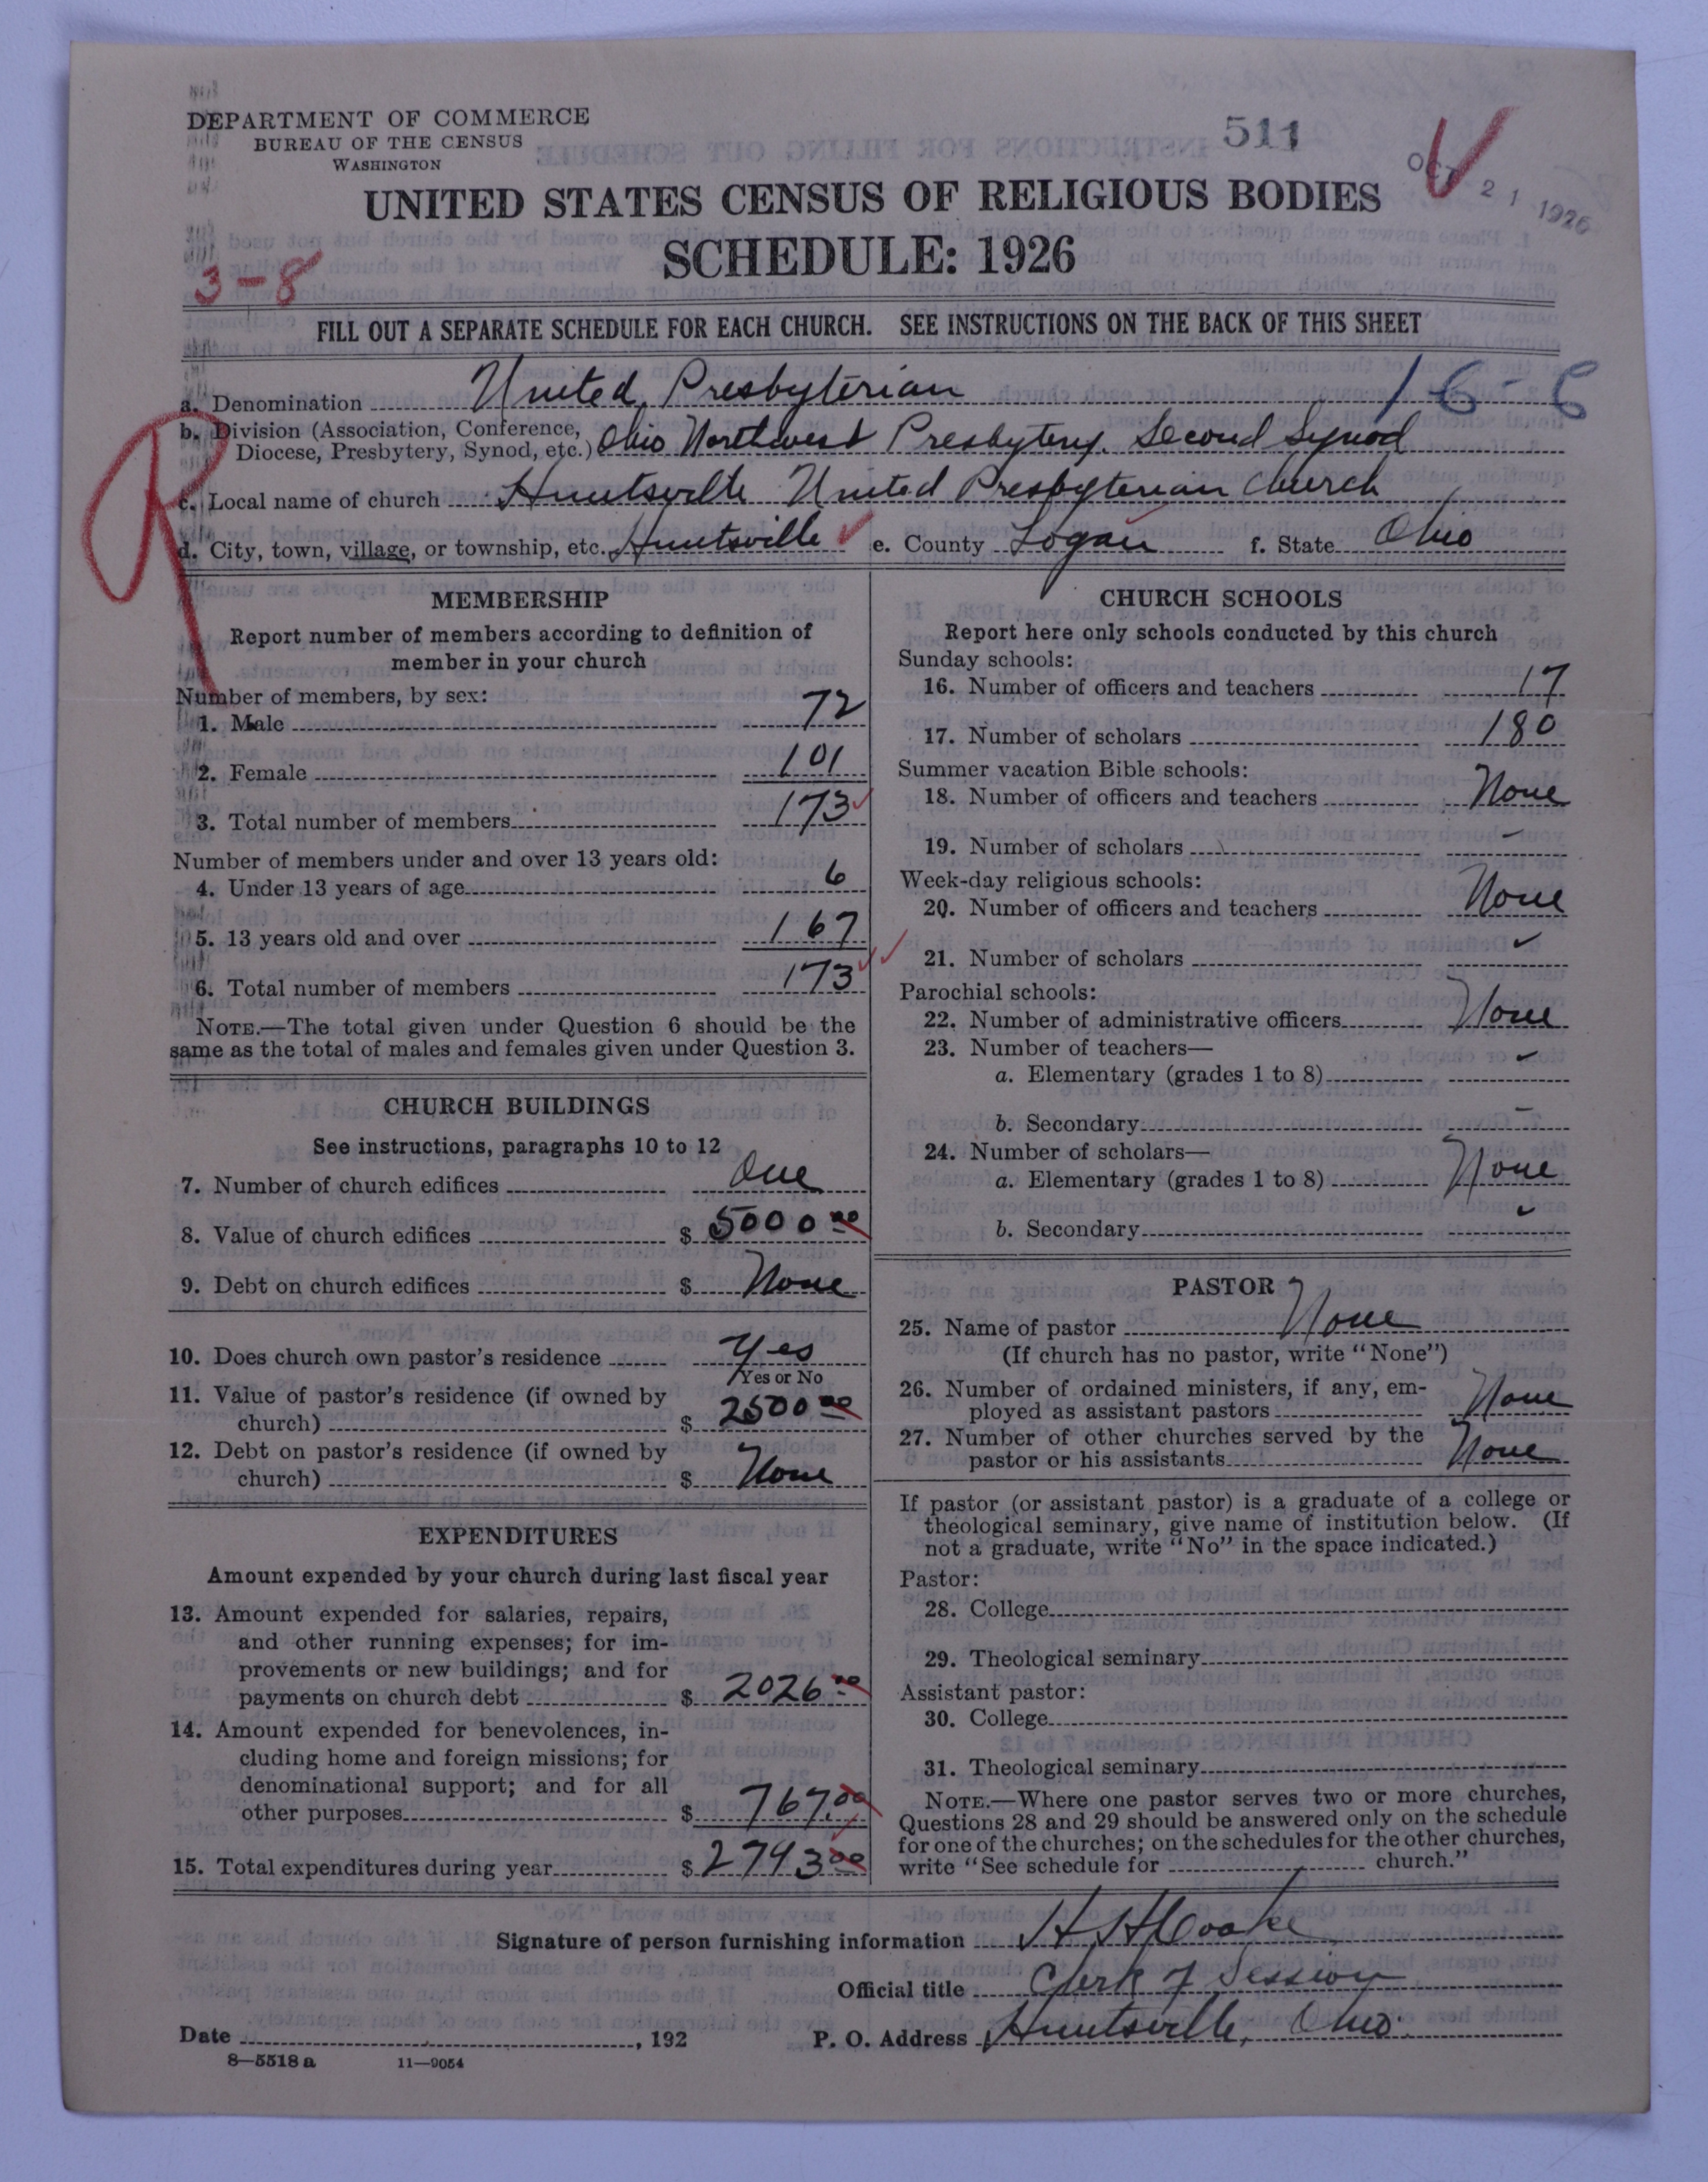 DEPARTMENT OF COMMERCE
BUREAU OF THE CENSUS
WASHINGTON
511
OCT 21 1926
UNITED STATES CENSUS OF RELIGIOUS BODIES
SCHEDULE: 1926
3-8
FILL OUT A SEPARATE SCHEDULE FOR EACH CHURCH. SEE INSTRUCTIONS ON THE BACK OF THIS SHEET
a. Denomination United Presbyterian 16-6
b. Division (Association, Conference, Diocese, Presbytery, Synod, etc.) Ohio Northwest Presbytery. Second Synod
R
c. Local name of church Huntsville United Presbyterian Church
d. City, town, village, or township, etc. Huntsville e. County Logan f. State Ohio
MEMBERSHIP
Report number of members according to definition of
member in your church
Number of members, by sex:
1. Male 72
2. Female 101
3. Total number of members 173
Number of members under and over 13 years old:
4. Under 13 years of age 6
5. 13 years old and over 167
6. Total number of members 173
NOTE.—The total given under Question 6 should be the
same as the total of males and females given under Question 3.
CHURCH BUILDINGS
See instructions, paragraphs 10 to 12
7. Number of church edifices One
8. Value of church edifices $ 5000 00
9. Debt on church edifices $ None
10. Does church own pastor's residence Yes
Yes or No
11. Value of pastor's residence (if owned by
church) $ 2500 00
12. Debt on pastor's residence (if owned by
church) $ None
EXPENDITURES
Amount expended by your church during last fiscal year
13. Amount expended for salaries, repairs,
and other running expenses; for im-
provements or new buildings; and for
payments on church debt $ 2026 00
14. Amount expended for benevolences, in-
cluding home and foreign missions; for
denominational support; and for all
other purposes $ 767.00
15. Total expenditures during year $ 2793 00
CHURCH SCHOOLS
Report here only schools conducted by this church
Sunday schools:
16. Number of officers and teachers 17
17. Number of scholars 180
Summer vacation Bible schools:
18. Number of officers and teachers None
19. Number of scholars -
Week-day religious schools:
20. Number of officers and teachers None
21. Number of scholars
Parochial schools:
22. Number of administrative officers None
23. Number of teachers—
a. Elementary (grades 1 to 8)
b. Secondary -
24. Number of scholars—
a. Elementary (grades 1 to 8) None
b. Secondary
PASTOR
25. Name of pastor None
(If church has no pastor, write "None")
26. Number of ordained ministers, if any, em-
ployed as assistant pastors None
27. Number of other churches served by the
pastor or his assistants None
If pastor (or assistant pastor) is a graduate of a college or
theological seminary, give name of institution below. (If
not a graduate, write "No" in the space indicated.)
Pastor:
28. College
29. Theological seminary
Assistant pastor:
30. College
31. Theological seminary
NOTE.—Where one pastor serves two or more churches,
Questions 28 and 29 should be answered only on the schedule
for one of the churches; on the schedules for the other churches,
write "See schedule for church."
Signature of person furnishing information H H Cooke
Official title Clerk of Session
Date , 192 P. O. Address Huntsville, Ohio.
8—5518a 11—9054